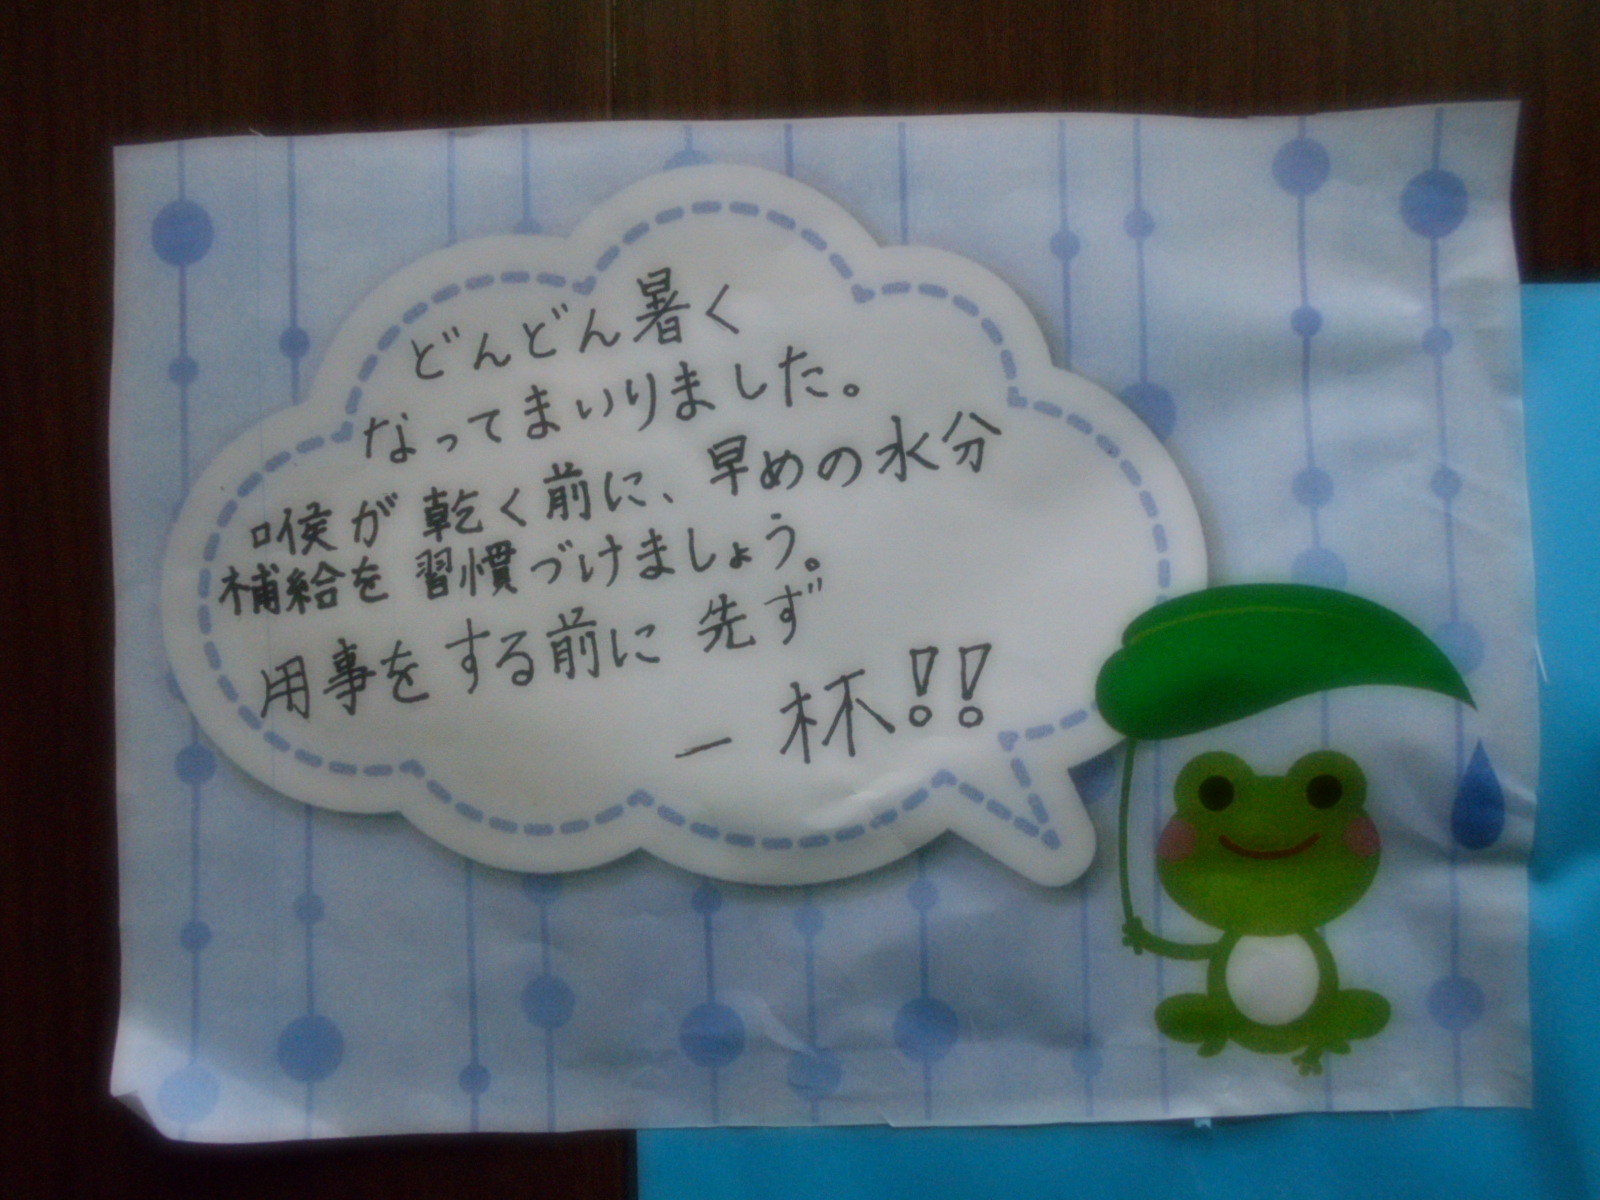 どんどん暑く
なってまいりました。
喉が乾く前に、早めの水分
補給を習慣づけましょう。
用事をする前に先ず
一杯!!